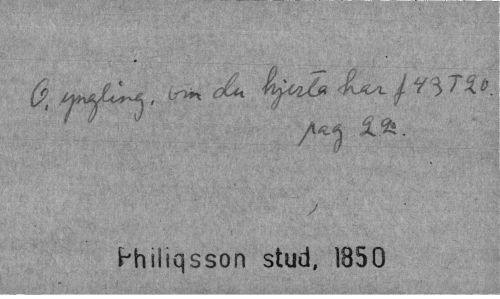 O, yngling, om du hjerta har f 43 T 20.
pag 22.
Philiqsson stud, 1850